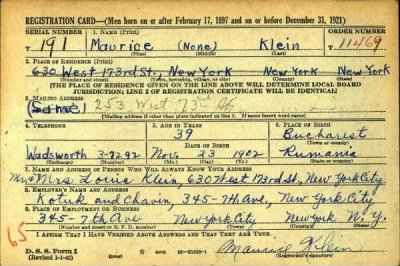 REGISTRATION CARD—(Men born on or after February 17, 1897 and on or before December 31, 1921)
SERIAL NUMBER 1. NAME (Print) ORDER NUMBER
T 191 Maurice (None) Klein T 11469
(First) (Middle) (Last)
2. PLACE OF RESIDENCE (Print)
630 West 173rd St., New York New York New York
(Number and street) (Town, township, village, or city) (County) (State)
[THE PLACE OF RESIDENCE GIVEN ON THE LINE ABOVE WILL DETERMINE LOCAL BOARD
JURISDICTION; LINE 2 OF REGISTRATION CERTIFICATE WILL BE IDENTICAL]
3. MAILING ADDRESS
(Same) 253 West 73rd St
[Mailing address if other than place indicated on line 2. If same insert word same]
4. TELEPHONE 5. AGE IN YEARS 6. PLACE OF BIRTH
39 Bucharest
DATE OF BIRTH (Town or county)
Wadsworth 3-7292 Nov. 23 1902 Rumania
(Exchange) (Number) (Mo.) (Day) (Yr.) (State or country)
7. NAME AND ADDRESS OF PERSON WHO WILL ALWAYS KNOW YOUR ADDRESS
Mrs Louis Klein, 630 West 173rd St, New York City
8. EMPLOYER'S NAME AND ADDRESS
and 345-7th Ave, New York City
9. PLACE OF EMPLOYMENT OR BUSINESS
345-7th Ave New York City New York N.Y.
(Number and street or R. F. D. number) (Town) (County) (State)
I AFFIRM THAT I HAVE VERIFIED ABOVE ANSWERS AND THAT THEY ARE TRUE.
65
D. S. S. Form 1
(Revised 1-1-42) (over) Maurice Klein